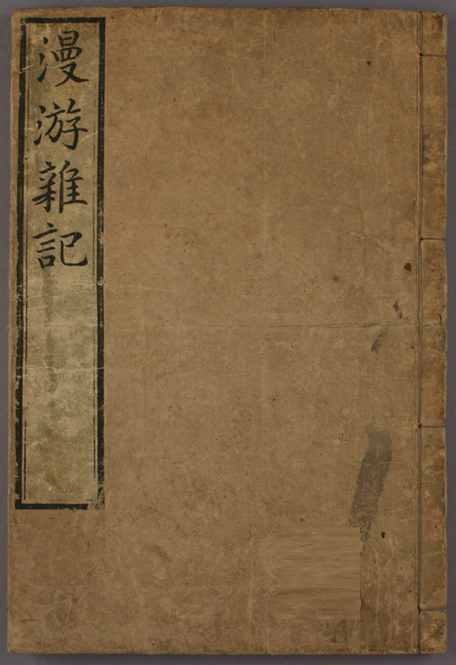 漫游雜記